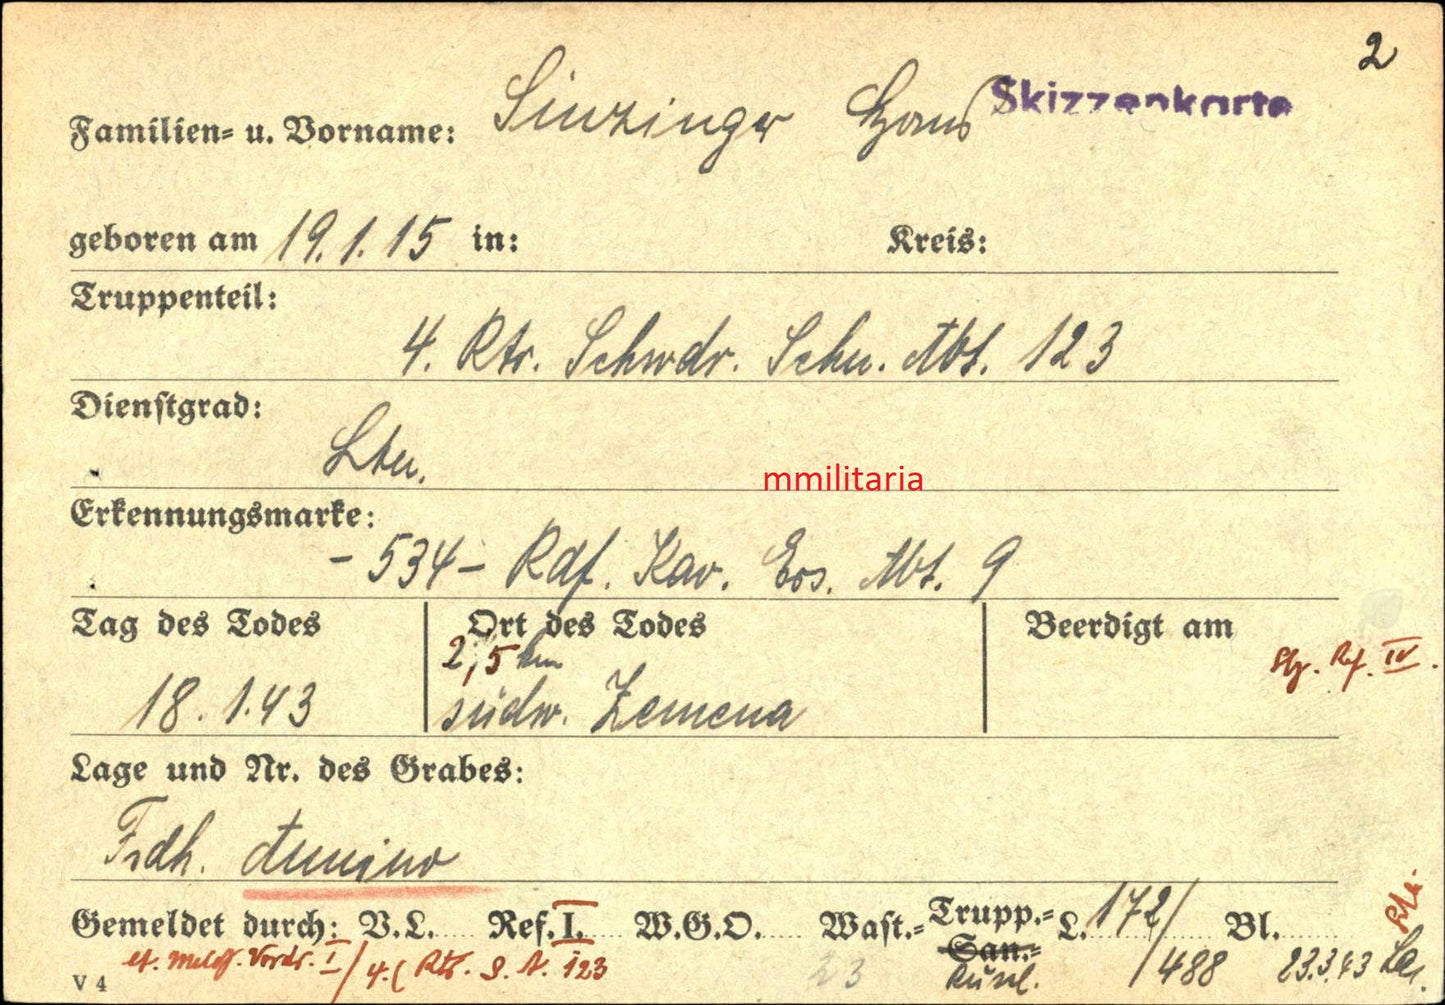 2
Familien= u. Vorname: Sinzinger Hans Skizzenkarte
geboren am 19.1.15 in: Kreis:
Truppenteil:
4. Rtr. Schwdr. Schn. Abt. 123
Dienstgrad:
Ltn.
mmilitaria
Erkennungsmarke:
- 534 - Rdf. Kav. Ers. Abt. 9
Tag des Todes Ort des Todes Beerdigt am
2,5 km
Ref. IV.
18.1.43 südw. Zemena
Lage und Nr. des Grabes:
Frdh.
Gemeldet durch: V.L. Ref. I. W.G.O. Wast.= Trupp.= L. 172/ Bl.
San.=
lt. Vordr. I/4.( Rtr. S. A. 123 23 /488 23.3.43
V 4